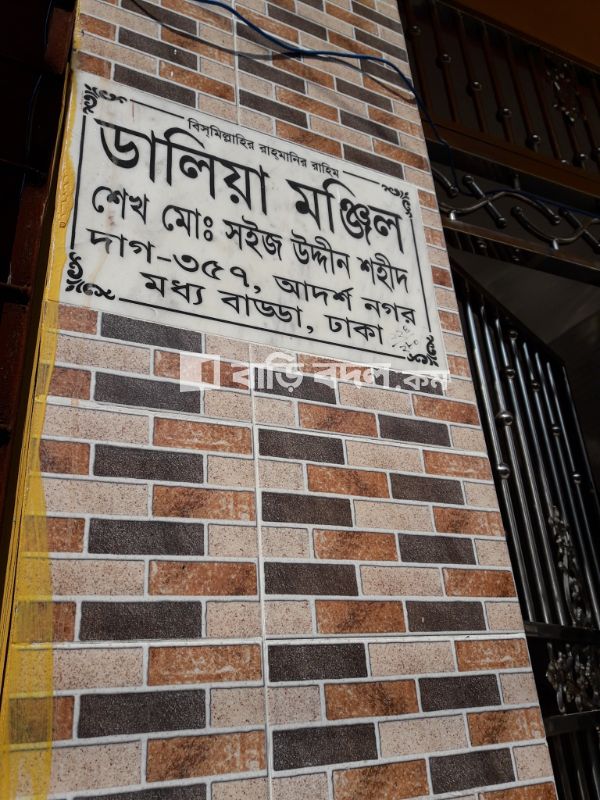 বিস্‌মিল্লাহির রাহ্‌মানির রাহিম
ডালিয়া মঞ্জিল
শেখ মোঃ সইজ উদ্দীন শহীদ
দাগ-৩৫৭, আদর্শ নগর
মধ্য বাড্ডা, ঢাকা
বাড়ি বদল.কম